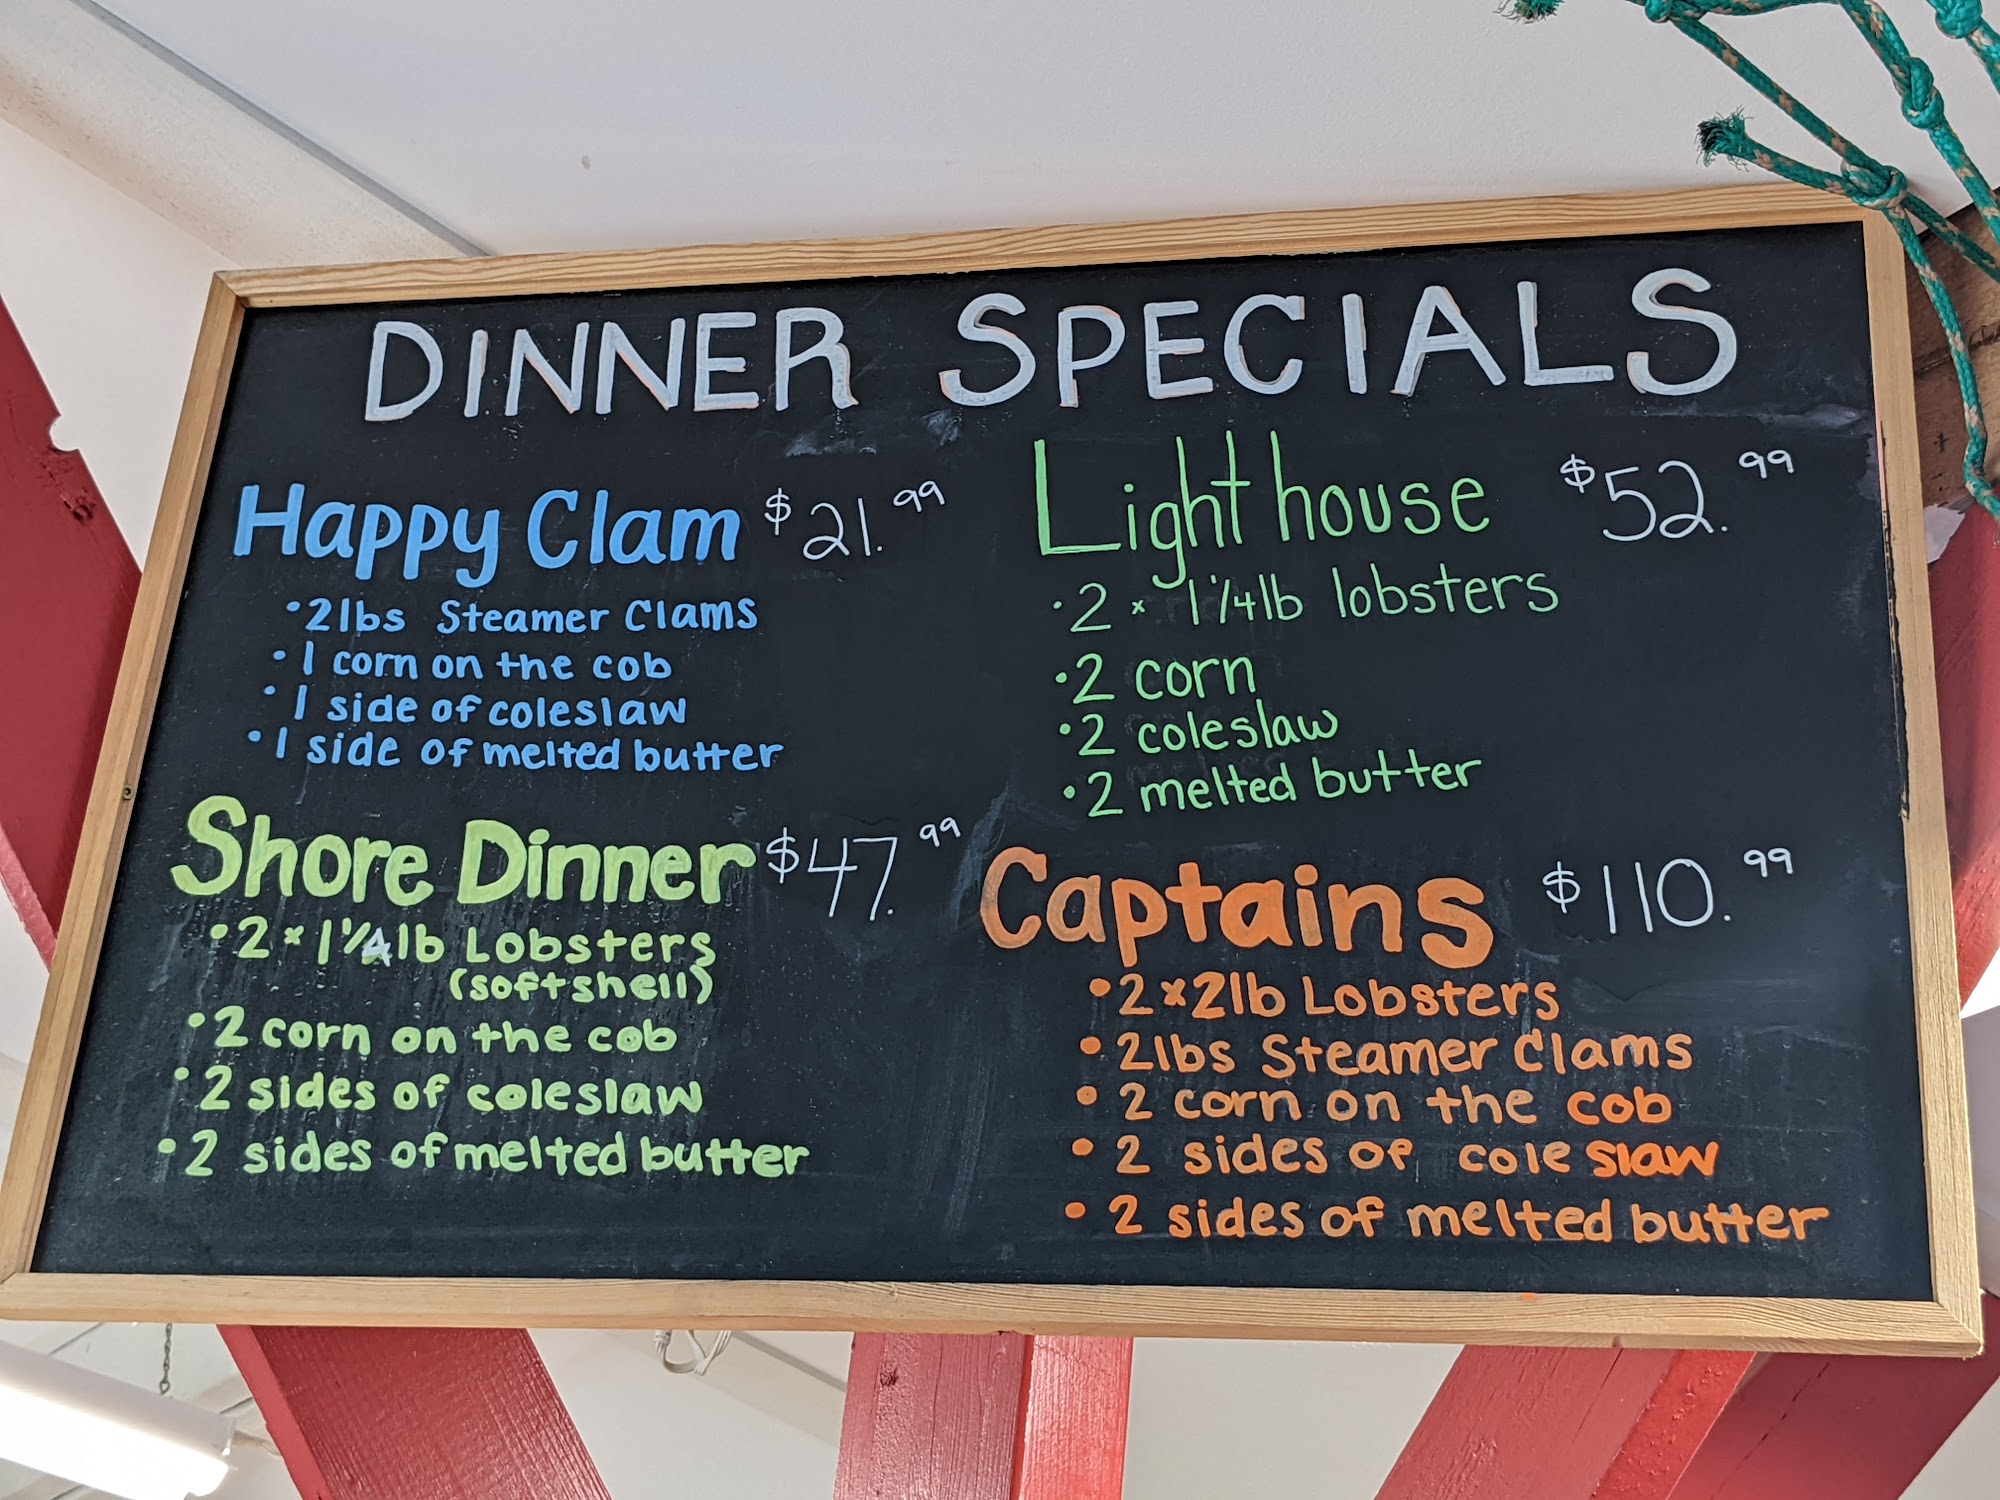 DINNER SPECIALS
Happy Clam $21.99
• 2lbs Steamer Clams
• 1 corn on the cob
• 1 side of coleslaw
• 1 side of melted butter
Shore Dinner $47.99
• 2 × 1 1/4 lb Lobsters
(softshell)
• 2 corn on the cob
• 2 sides of coleslaw
• 2 sides of melted butter
Lighthouse $52.99
• 2 × 1 1/4 lb lobsters
• 2 corn
• 2 coleslaw
• 2 melted butter
Captains $110.99
• 2 × 2lb Lobsters
• 2lbs Steamer Clams
• 2 corn on the cob
• 2 sides of coleslaw
• 2 sides of melted butter